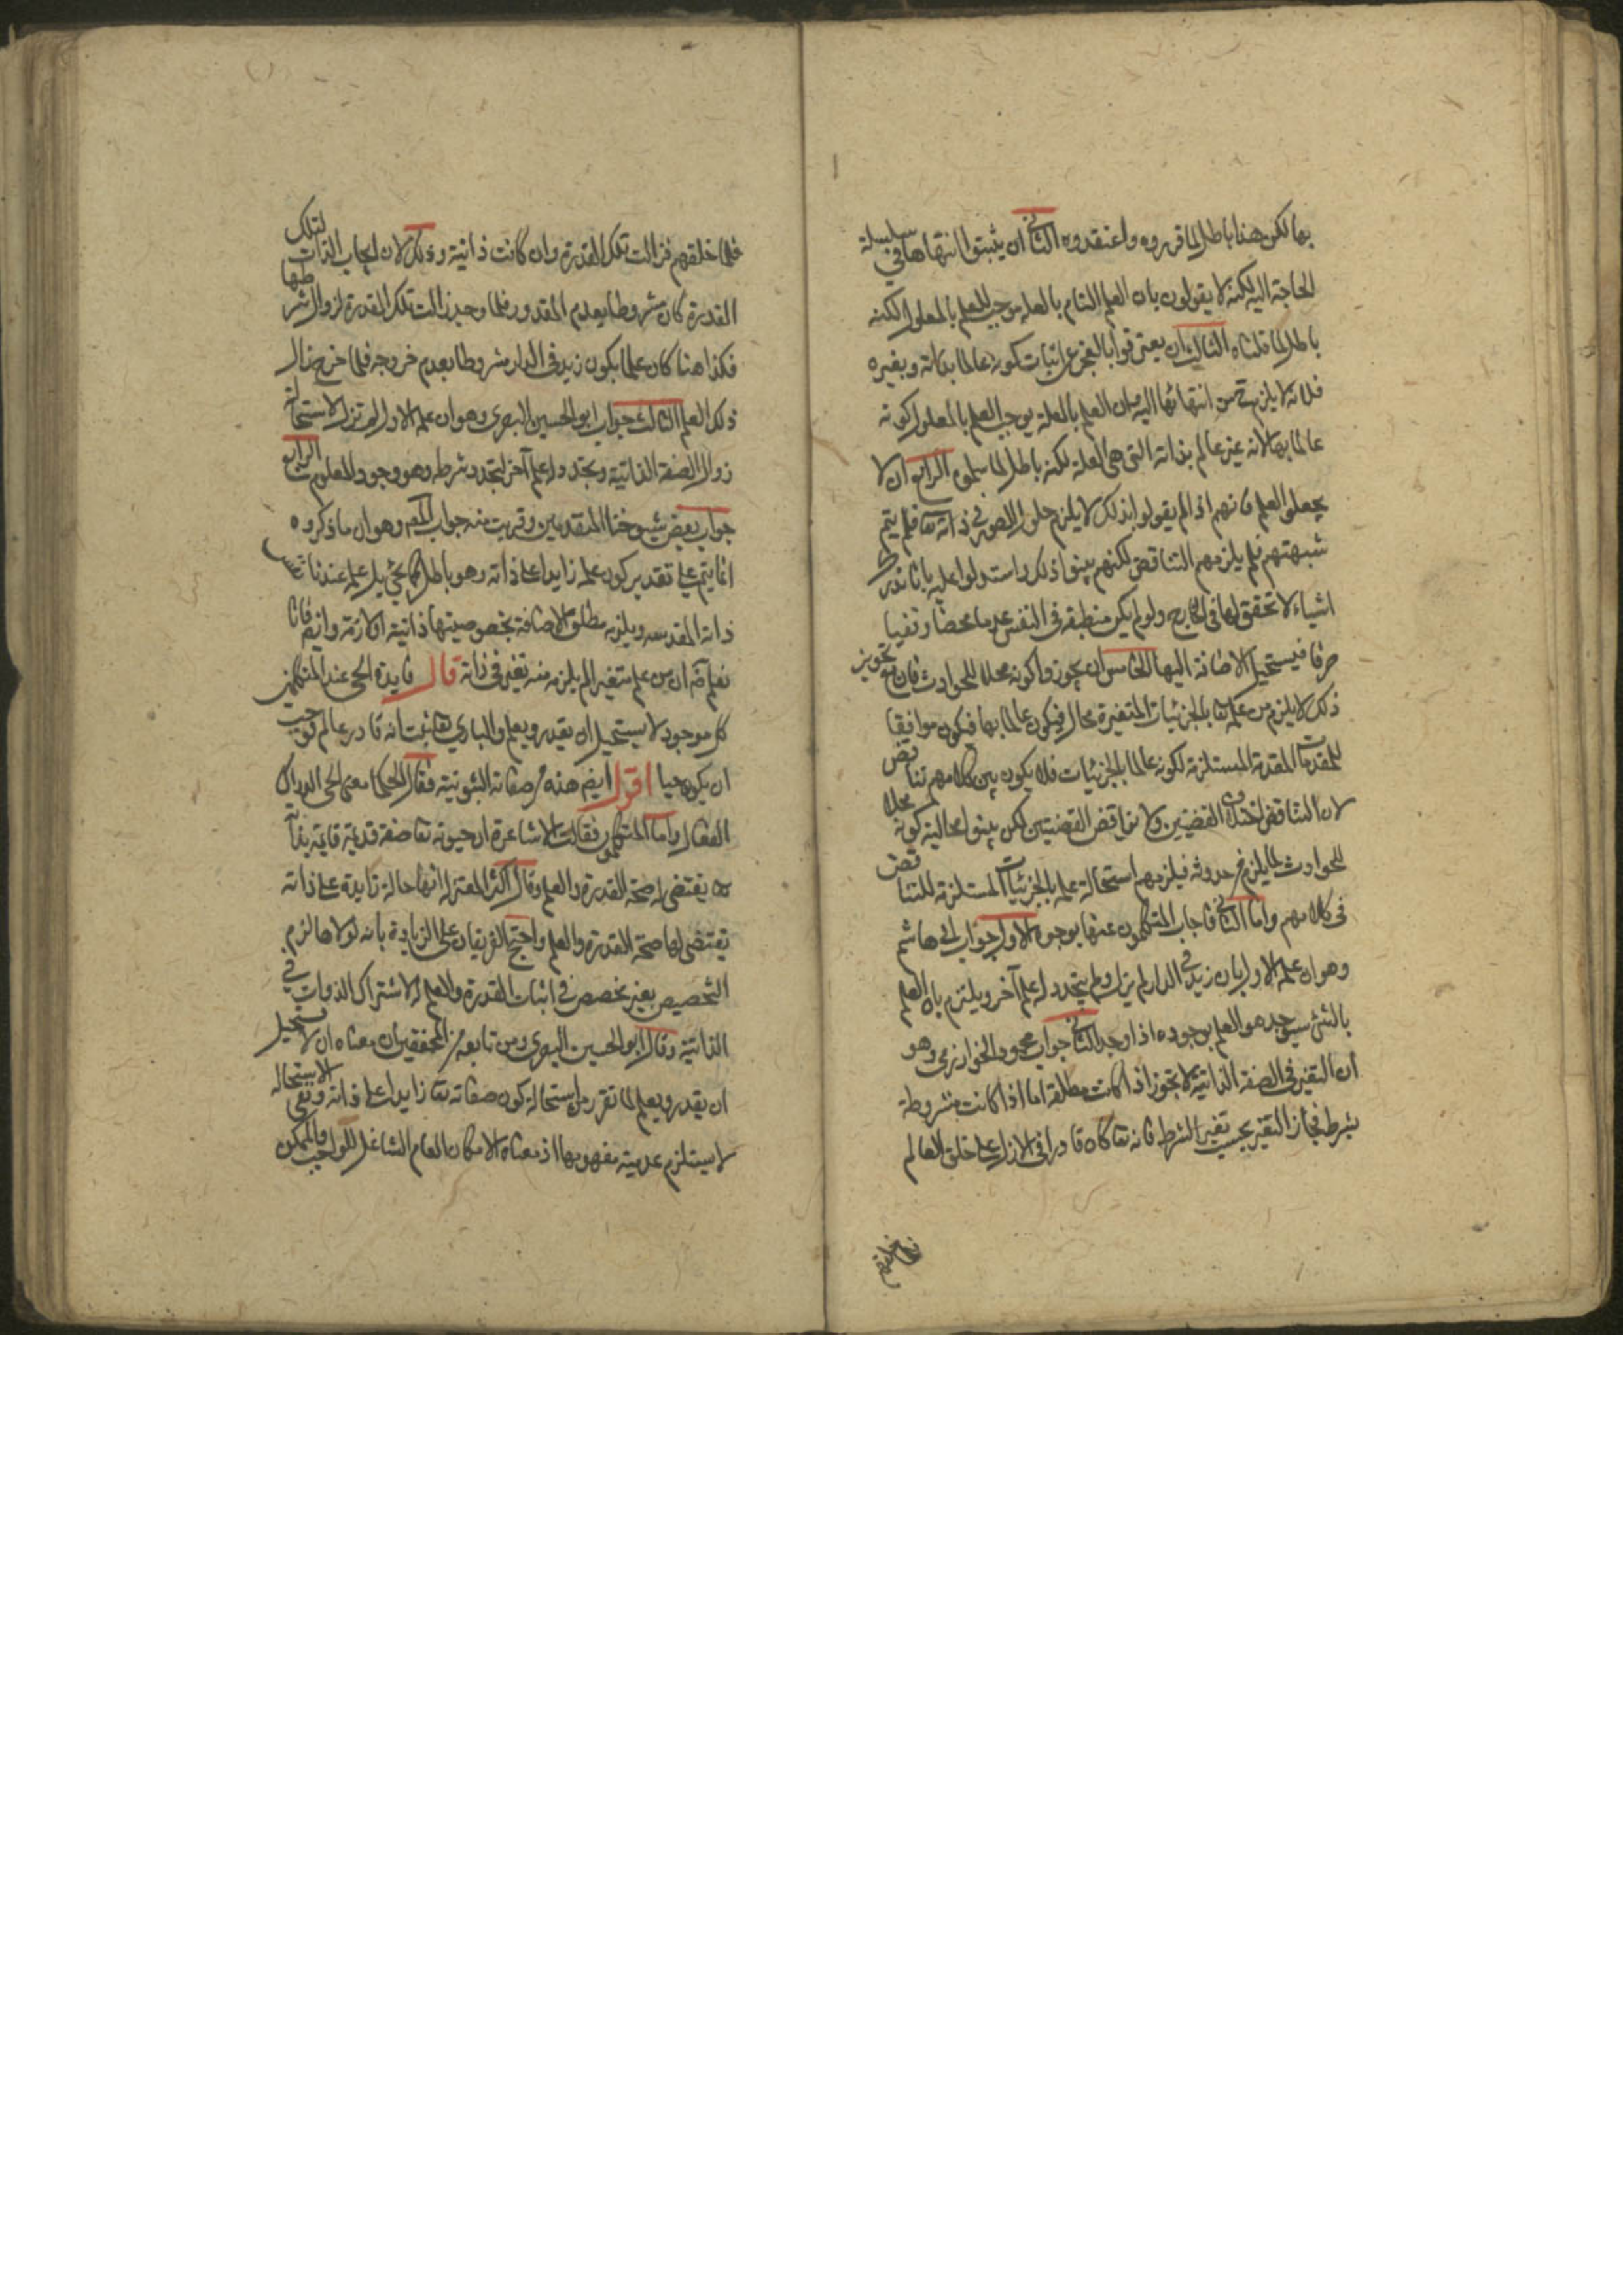 بها لكن هذا باطل لما قرروه واعتقدوه الثاني ان يثبتوا انتهاها في سلسلة
الحاجة اليه لكنه لا يقولون بان العلم التام بالعلة موجب للعلم بالمعلول لكنه
باطل لما قلناه الثالث ان يعترفوا بالعجز عن اثبات كونه عالما بذاته وبغيره
فلانه لا يلزم ح من انتهائها اليه وان العلم بالعلة يوجب العلم بالمعلول كونه
عالما بها لانه غير عالم بذاته التي هي العلة لكنه باطل لما سلموه الرابع ان لا
يجعلوا العلم فانهم اذا لم يقولوا بذلك لا يلزم حلول الصور في ذاته تعا فلم يتم
شبهتهم فلم يلزمهم التناقض لكنهم بينوا ذلك واستدلوا عليه بانا ندرك
اشياء لا تحقق لها في الخارج ولو لم يكن منطبعة في النفس عدما محضا ونفيا
صرفا فيستحيل الاضافة اليها الخامس ان يجوزوا كونه محلا للحوادث فان مع تجويز
ذلك لا يلزم من علمه تعا بالجزئيات المتغيرة محال فيكون عالما بها فيكون موافقا
للمقدمات المقدمة المستلزمة لكونه عالما بالجزئيات فلا يكون بين كلامهم تناقض
لان التناقض اختلاف القضيتين ولا تناقض القضيتين لكن بينوا محالية كونه محلا
للحوادث لما يلزم من حدوثه فيلزمهم استحالة علمه بالجزئيات المستلزمة للتناقض
في كلامهم واما الثاني فاجاب المتكلمون عنها بوجوه الاول جواب ابي هاشم
وهو ان علمه الاول بان زيد في الدار لم يزل ولم يتجدد له علم آخر ويلتزم بان العلم
بالشئ سيوجد هو العلم بوجوده اذا وجد الثاني جواب محمود الخوارزمي وهو
ان التغير في الصفة الذاتية لا يجوز اذا كانت مطلقة اما اذا كانت مشروطة
بشرط فجاز التغير بحسب تغير الشرط فانه تعا كان قادرا في الازل على خلق العالم
فلما خلقهم
فلما خلقهم فزالت تلك القدرة وان كانت ذاتية وذلك لان ايجاب الذات لتلك
القدرة كان مشروطا بعدم المقدور فلما وجد زالت تلك القدرة لزوال شرطها
فكذا هنا كان علما بكون زيد في الدار مشروطا بعدم خروجه فلما خرج زال
ذلك العلم الثالث جواب ابو الحسين البصري وهو ان علمه الاول لم تزل لاستحالة
زوال الصفة الذاتية وتجدد له علم آخر لتجدد شرطه وهو وجود المعلوم الرابع
جواب بعض شيوخنا المتقدمين وقريب منه جواب المصـ وهو ان ما ذكروه
انما يتم على تقدير كون علمه زايدا على ذاته وهو باطل كما يجئ بل علمه عندنا نفس
ذاته المقدسه ويلزمه مطلق الاضافة بخصوصيتها ذاتية لازمة وايضـ فانا
نعلم آن من علم متغيرا لم يلزم منه تغير في ذاته قال فايدة الحي عند المتكلمين
كل موجود لا يستحيل ان يقدر ويعلم والباري تعا ثبت انه قادر عالم فوجب
ان يكون حيا اقول ايضـ هذه من صفاته الثبوتية فقال الحكما معنى الحي الدراك
الفعال واما المتكلمون فقالت الاشاعرة ان حيوته تعا صفة قديمة قايمة بذاته
تعا يقتضي له صحة القدرة والعلم وقال اكثر المعتزلة انها حالة زايدة على ذاته
تقتضي لها صحة القدرة والعلم واحتج الفريقان على الزيادة بانه لولاها لزم
التخصيص بغير مخصص في اثبات القدرة والعلم له لاشتراك الذوات في
الذاتية وقال ابو الحسين البصري ومن تابعه من المحققين ان معناه ان لا يستحيل
ان يقدر ويعلم لما تقرر من استحالة كون صفاته تعا زايدا على ذاته ونفي الاستحالة
لا يستلزم عدمية مفهومها اذ معناه الامكان العام الشامل للواجب والممكن